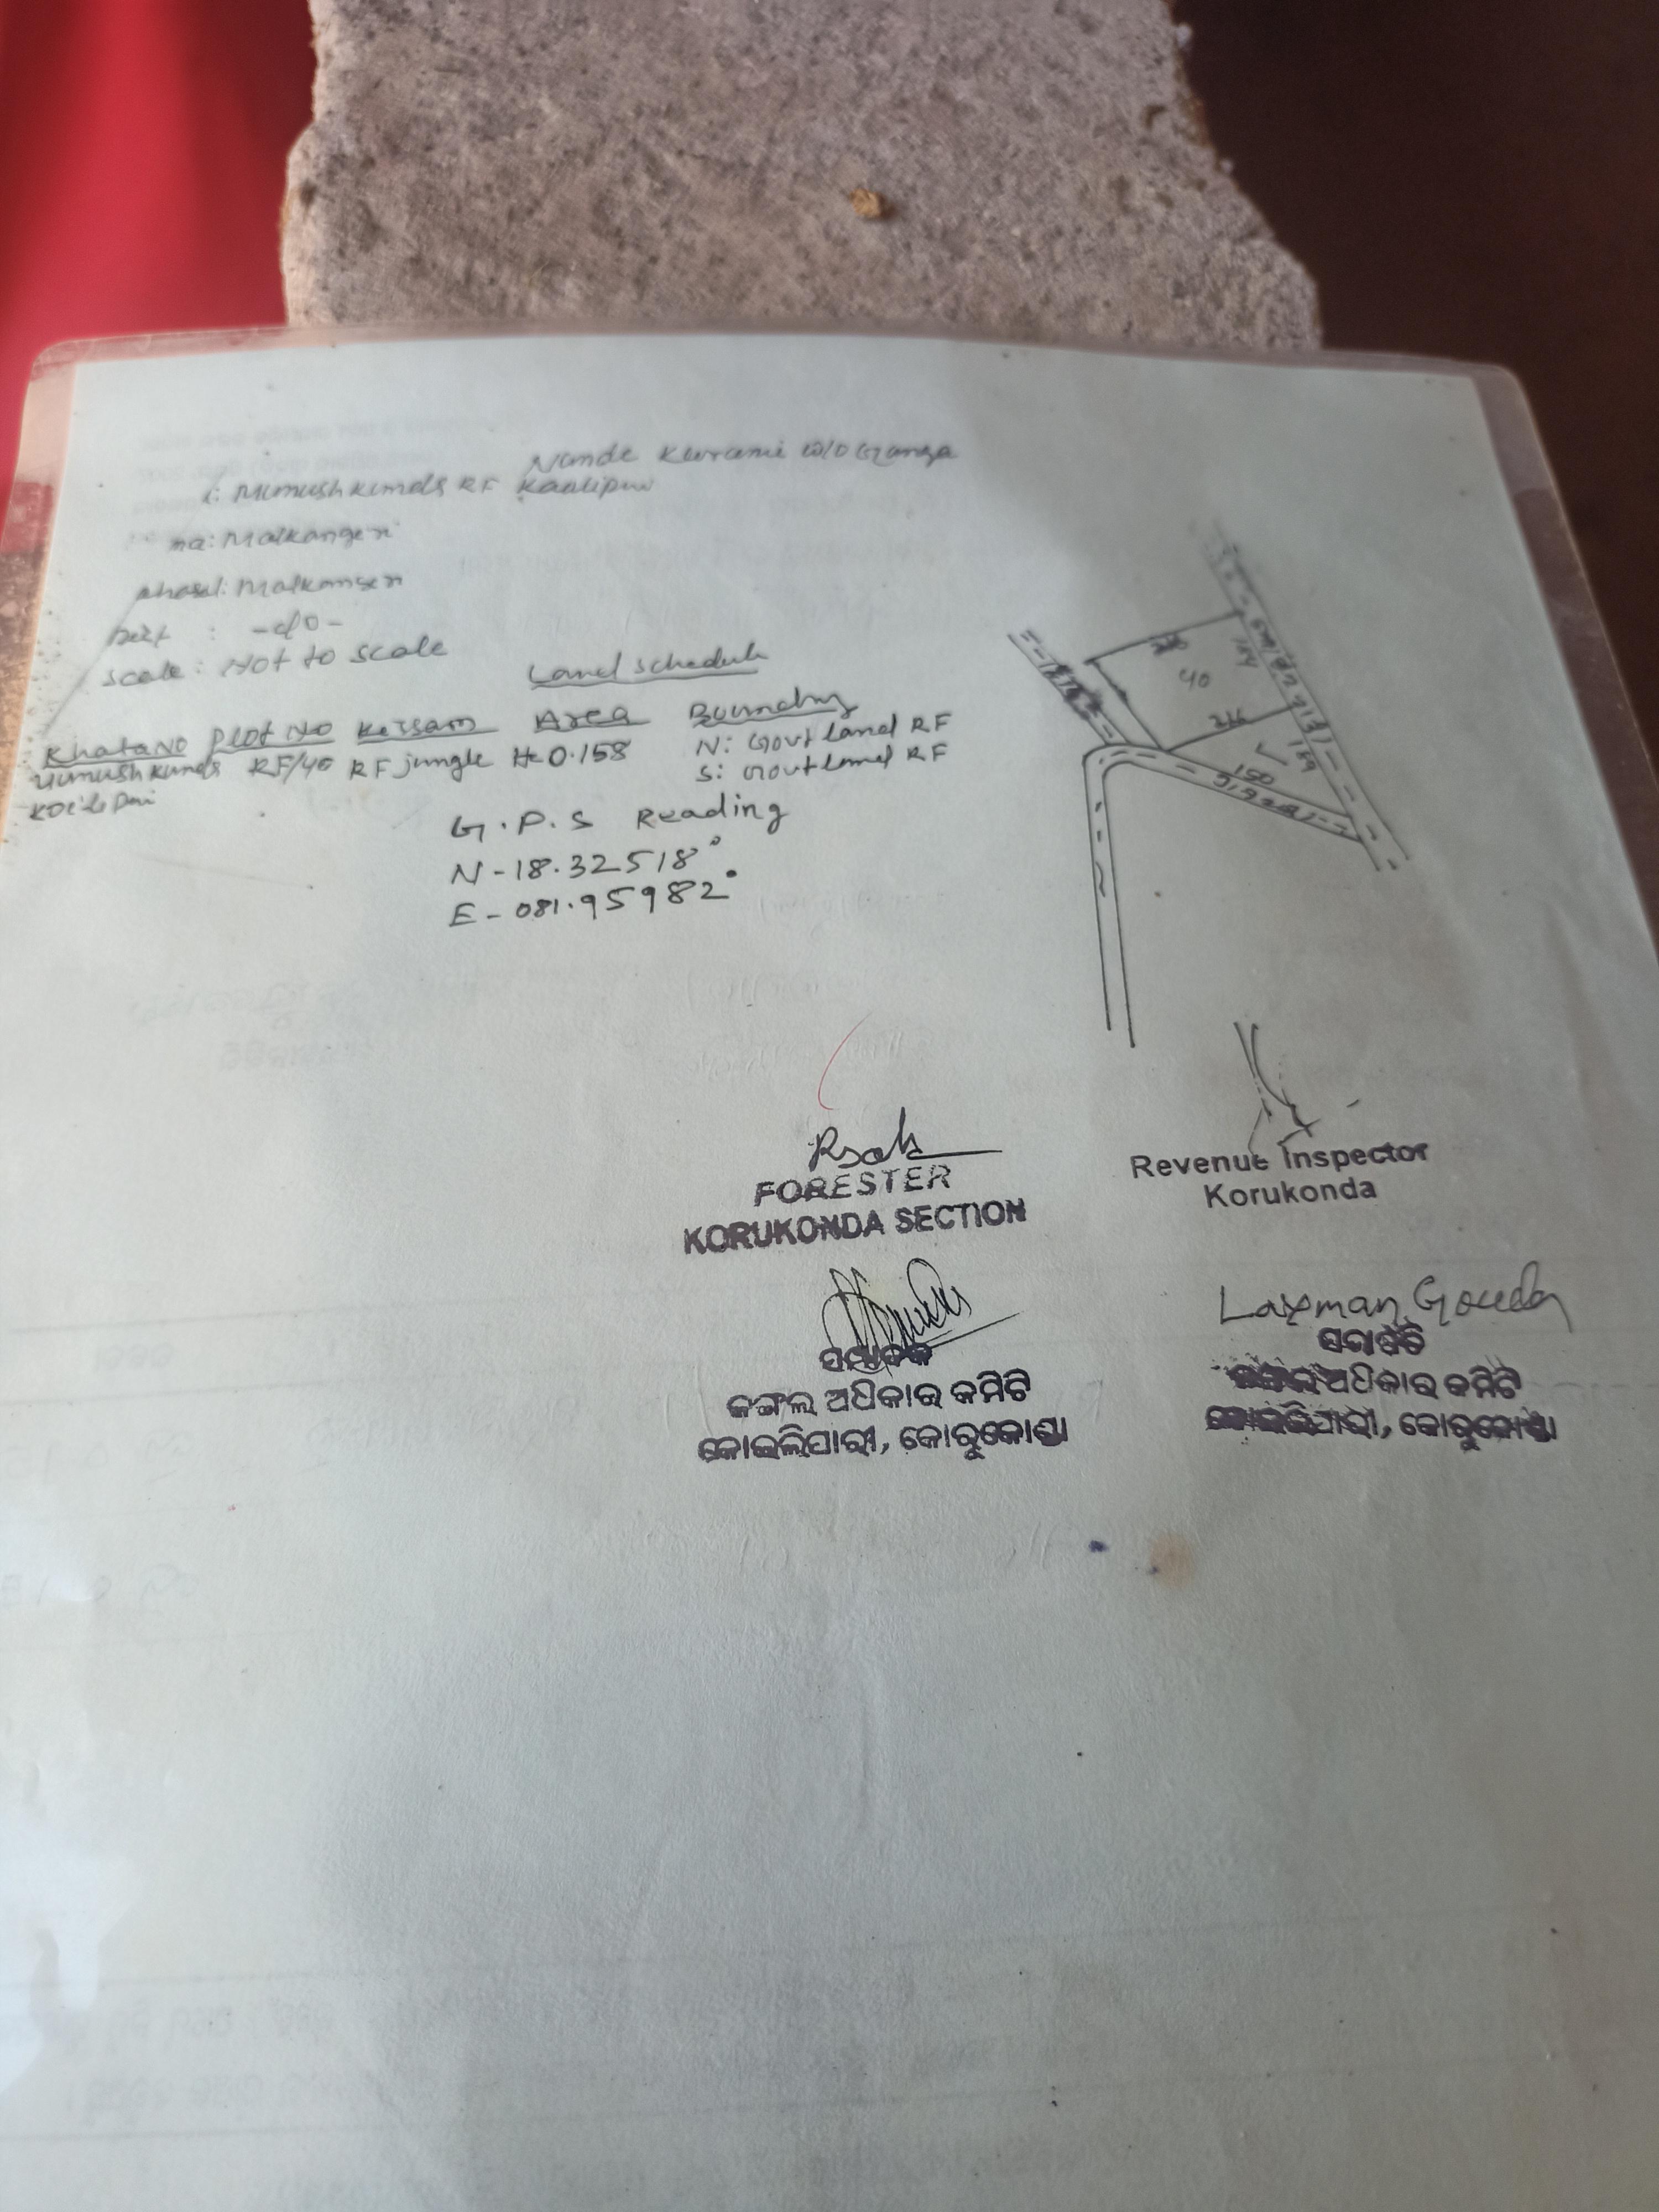 Nande Kurami W/O Ganga
: Mumushkunda RF Koailipari
na: Malkangeri
ahasil: Malkangeri
Dist : -do-
Scale : Not to scale
Land schedule
Khata No Plot No Keissam Area Boundry
RF/40 RF jungle H-0.158 N: Govt land RF
S: Govt land RF
G.P.S Reading
N-18.32518°
E-081.95982°
40
216
184
159
150
FORESTER
KORUKONDA SECTION
Revenue Inspector
Korukonda
ସମ୍ପାଦକ
ଜଙ୍ଗଲ ଅଧିକାର କମିଟି
କୋଇଲିପାରୀ, କୋରୁକୋଣ୍ଡା
Laxman Gouda
ସଭାପତି
ଜଙ୍ଗଲ ଅଧିକାର କମିଟି
କୋଇଲିପାରୀ, କୋରୁକୋଣ୍ଡା